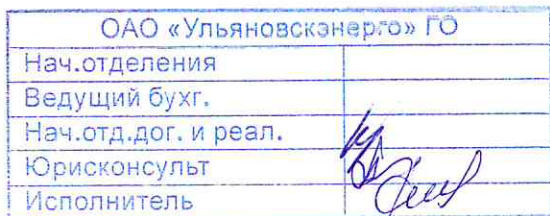 ОАО «Ульяновскэнерго» ГО
Нач.отделения
Ведущий бухг.
Нач.отд.дог. и реал.
Юрисконсульт
Исполнитель